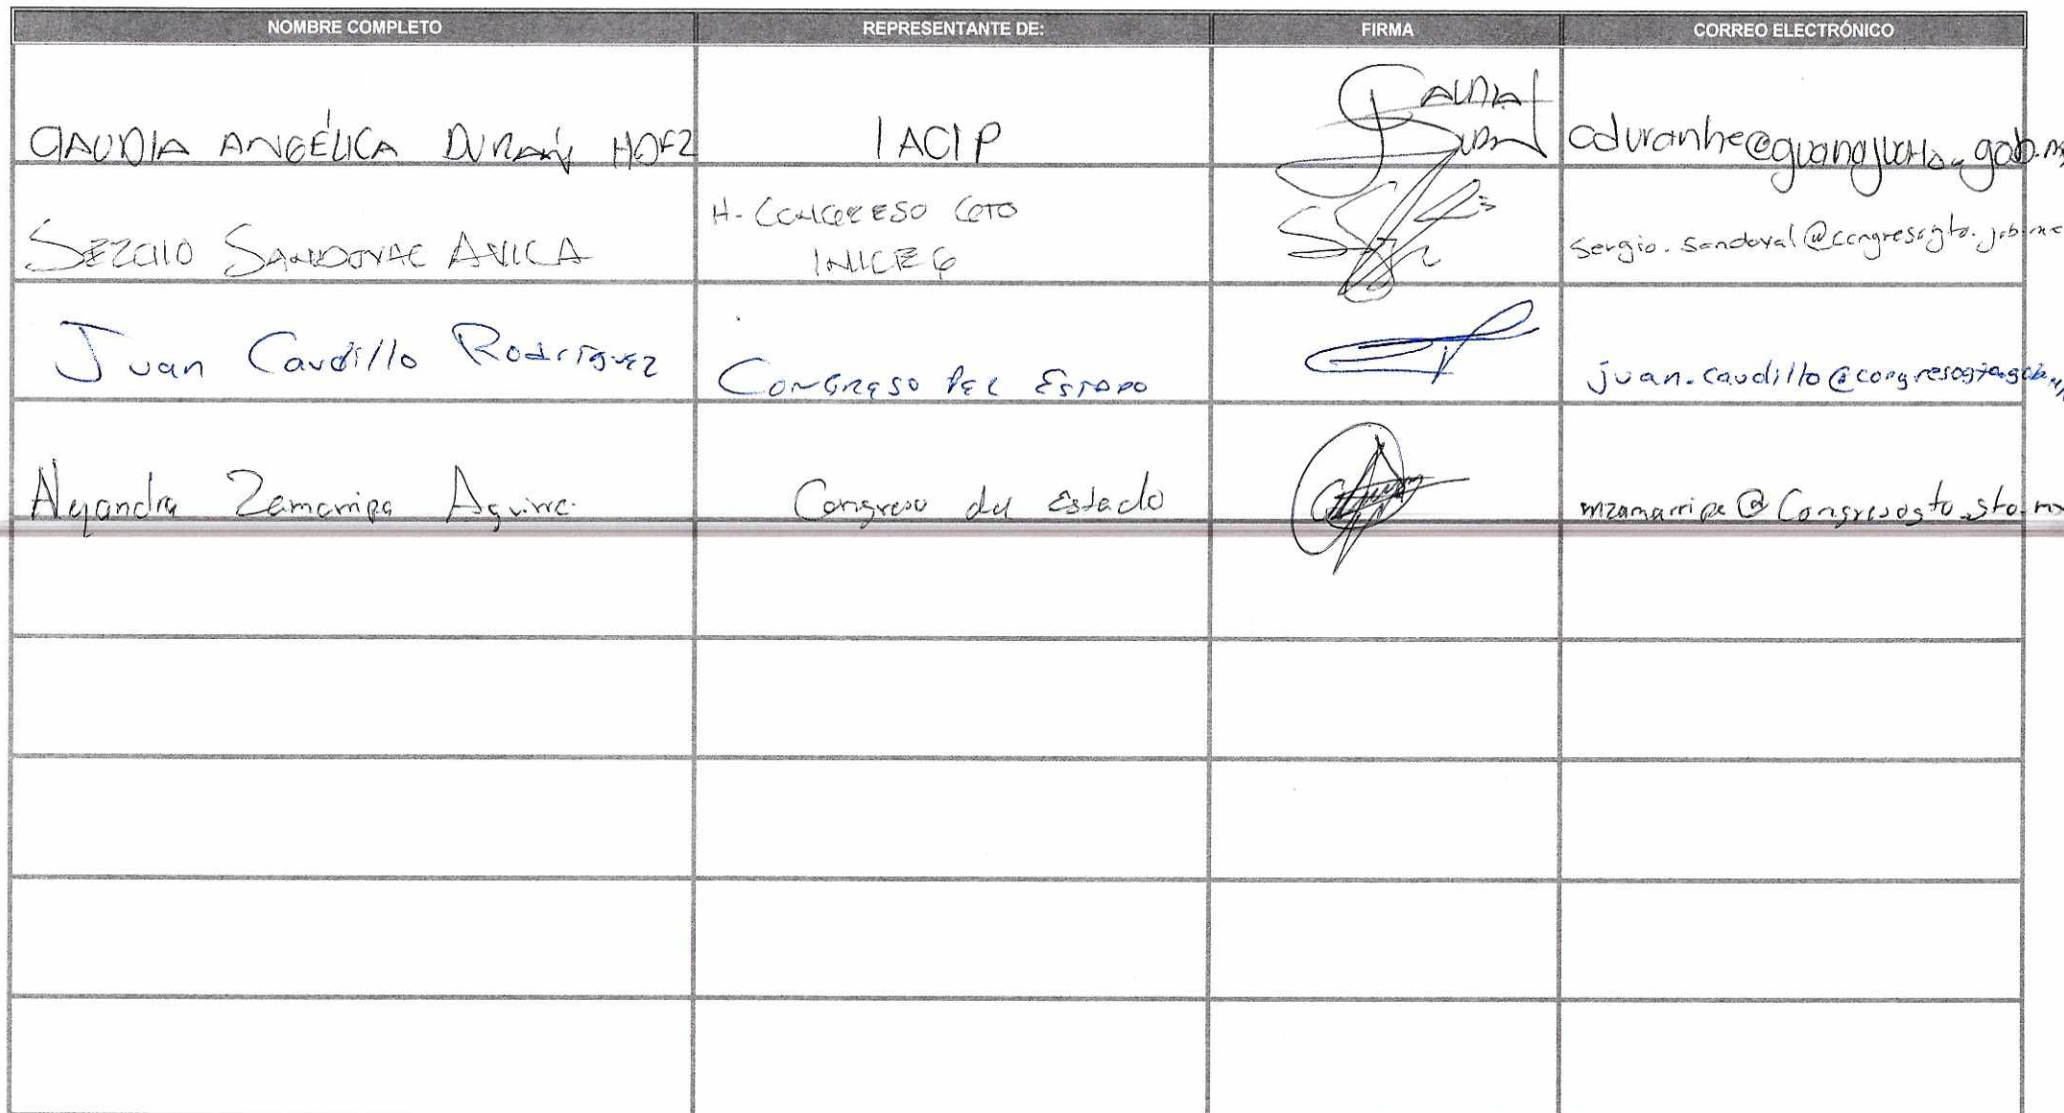 NOMBRE COMPLETO REPRESENTANTE DE: FIRMA CORREO ELECTRÓNICO
CLAUDIA ANGÉLICA DURÁN HDEZ IACIP cduranhe@guanajuato.gob.mx
SERGIO SANDOVAL AVILA H. CONGRESO GTO
INILEG sergio.sandoval@congresogto.gob.mx
Juan Caudillo Rodríguez CONGRESO DEL ESTADO juan.caudillo@congresogto.gob.mx
Alejandra Zamarripa Aguirre Congreso del Estado mzamarripa@Congresogto.gto.mx